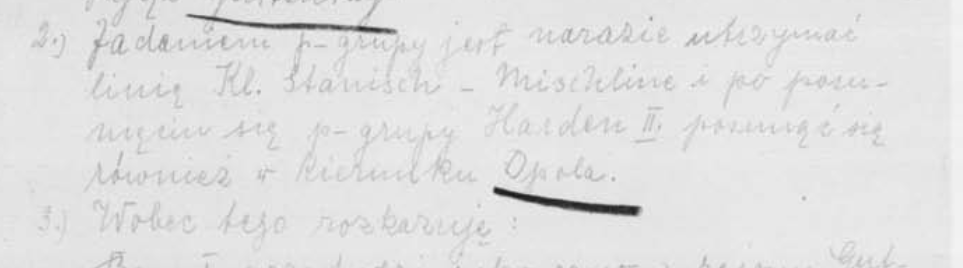 2.) Zadaniem p-grupy jest narazie utrzymać
linię Kl. Stanisch - Mischline i po posu-
nięciu się p-grupy Harden II. posunąć się
również w kierunku Opola.
3.) Wobec tego rozkazuję: